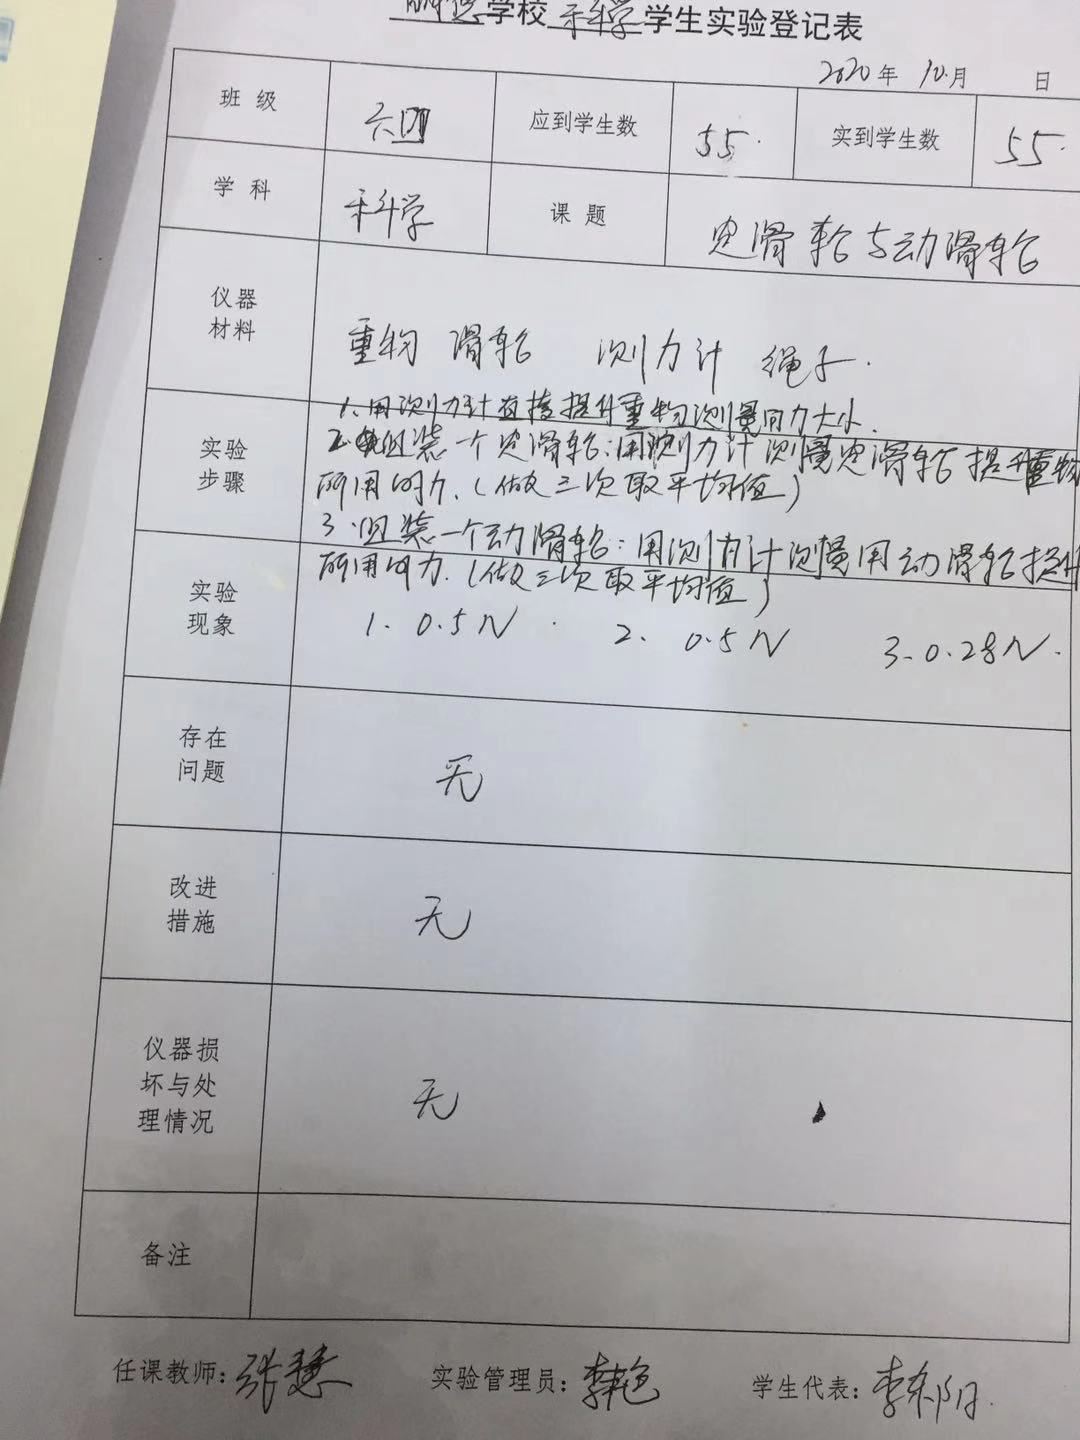 学校 科学 学生实验登记表
2020年 10月 日
班级 六四 应到学生数 55. 实到学生数 55.
学科 科学 课题 定滑轮与动滑轮
仪器
材料
重物 滑轮 测力计 绳子.
实验
步骤
1.用测力计直接提升重物测量向力大小.
2.组装一个定滑轮:用测力计测量定滑轮提升重物
所用的力.(做三次取平均值)
3.组装一个动滑轮:用测力计测量用动滑轮提升
所用的力.(做三次取平均值)
实验
现象
1. 0.5N. 2. 0.5N 3. 0.28N.
存在
问题
无
改进
措施
无
仪器损
坏与处
理情况
无
备注
任课教师:张慧 实验管理员:李艳 学生代表:李